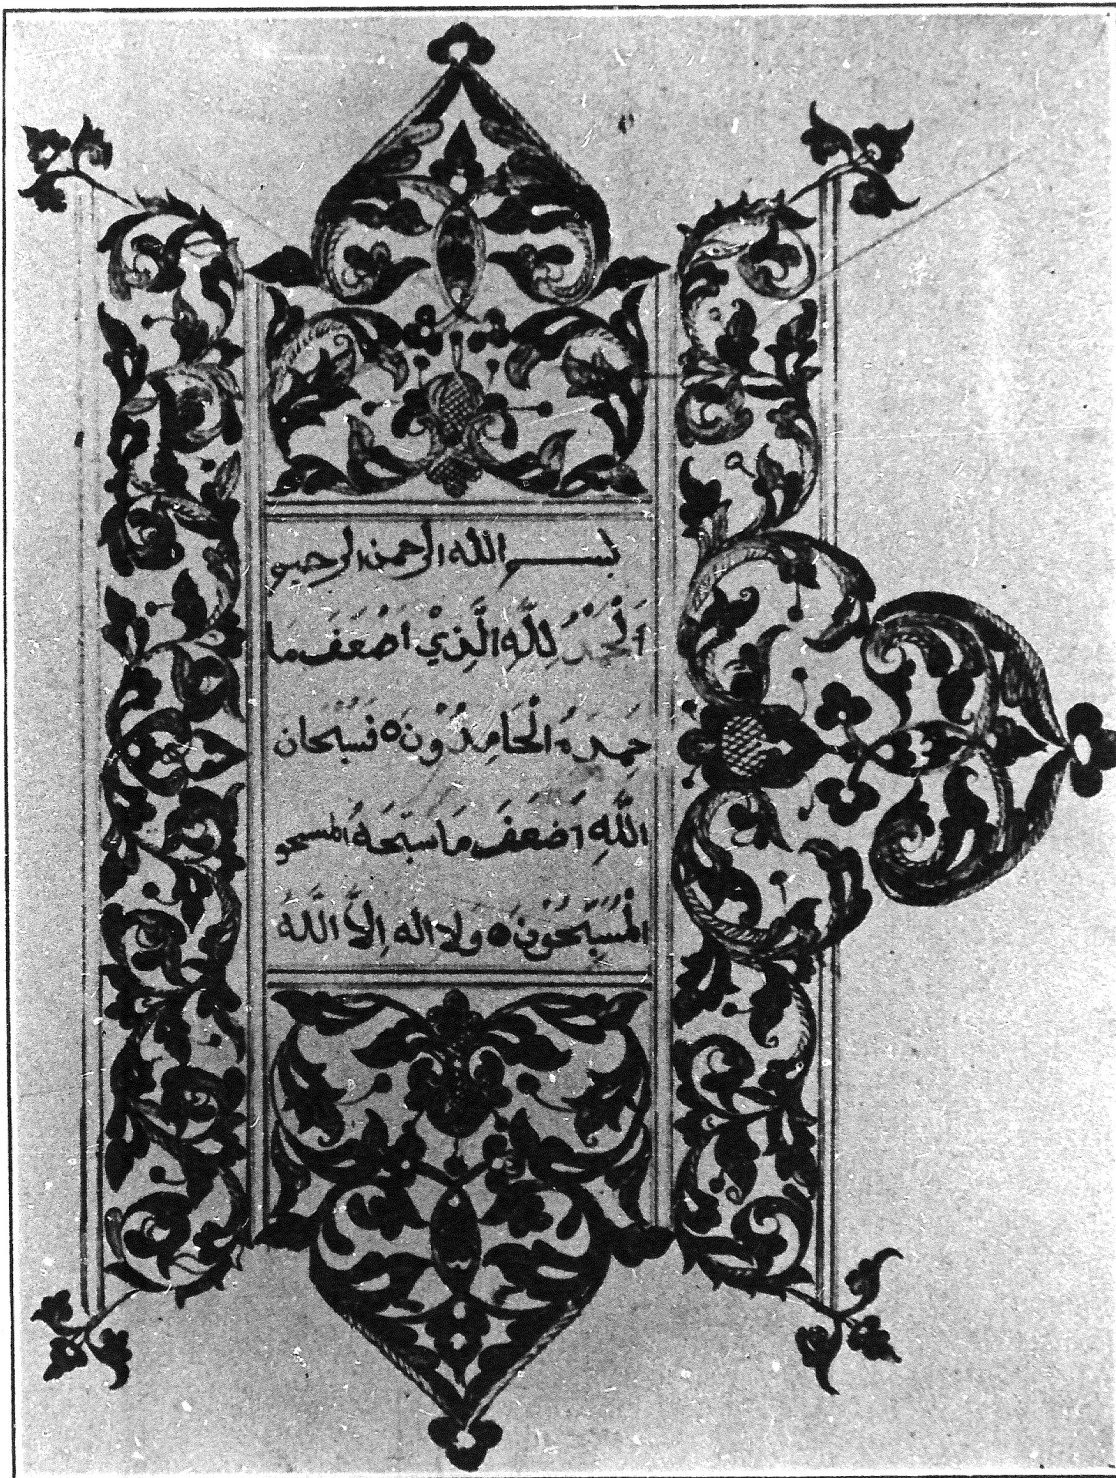 بسم الله الرحمن الرحيم
اَلْحَمْدُ لِلّٰهِ الَّذِيْ اضعَفَ مَا
حَمِدَهُ الْحَامِدُوْنَ ٥ فَسُبْحَان
اللّٰهِ اضعَفَ مَا سَبَّحَهُ المسبحو
الْمُسَبِّحُوْنَ ٥ وَلا اله اِلاَّ اللّٰهُ